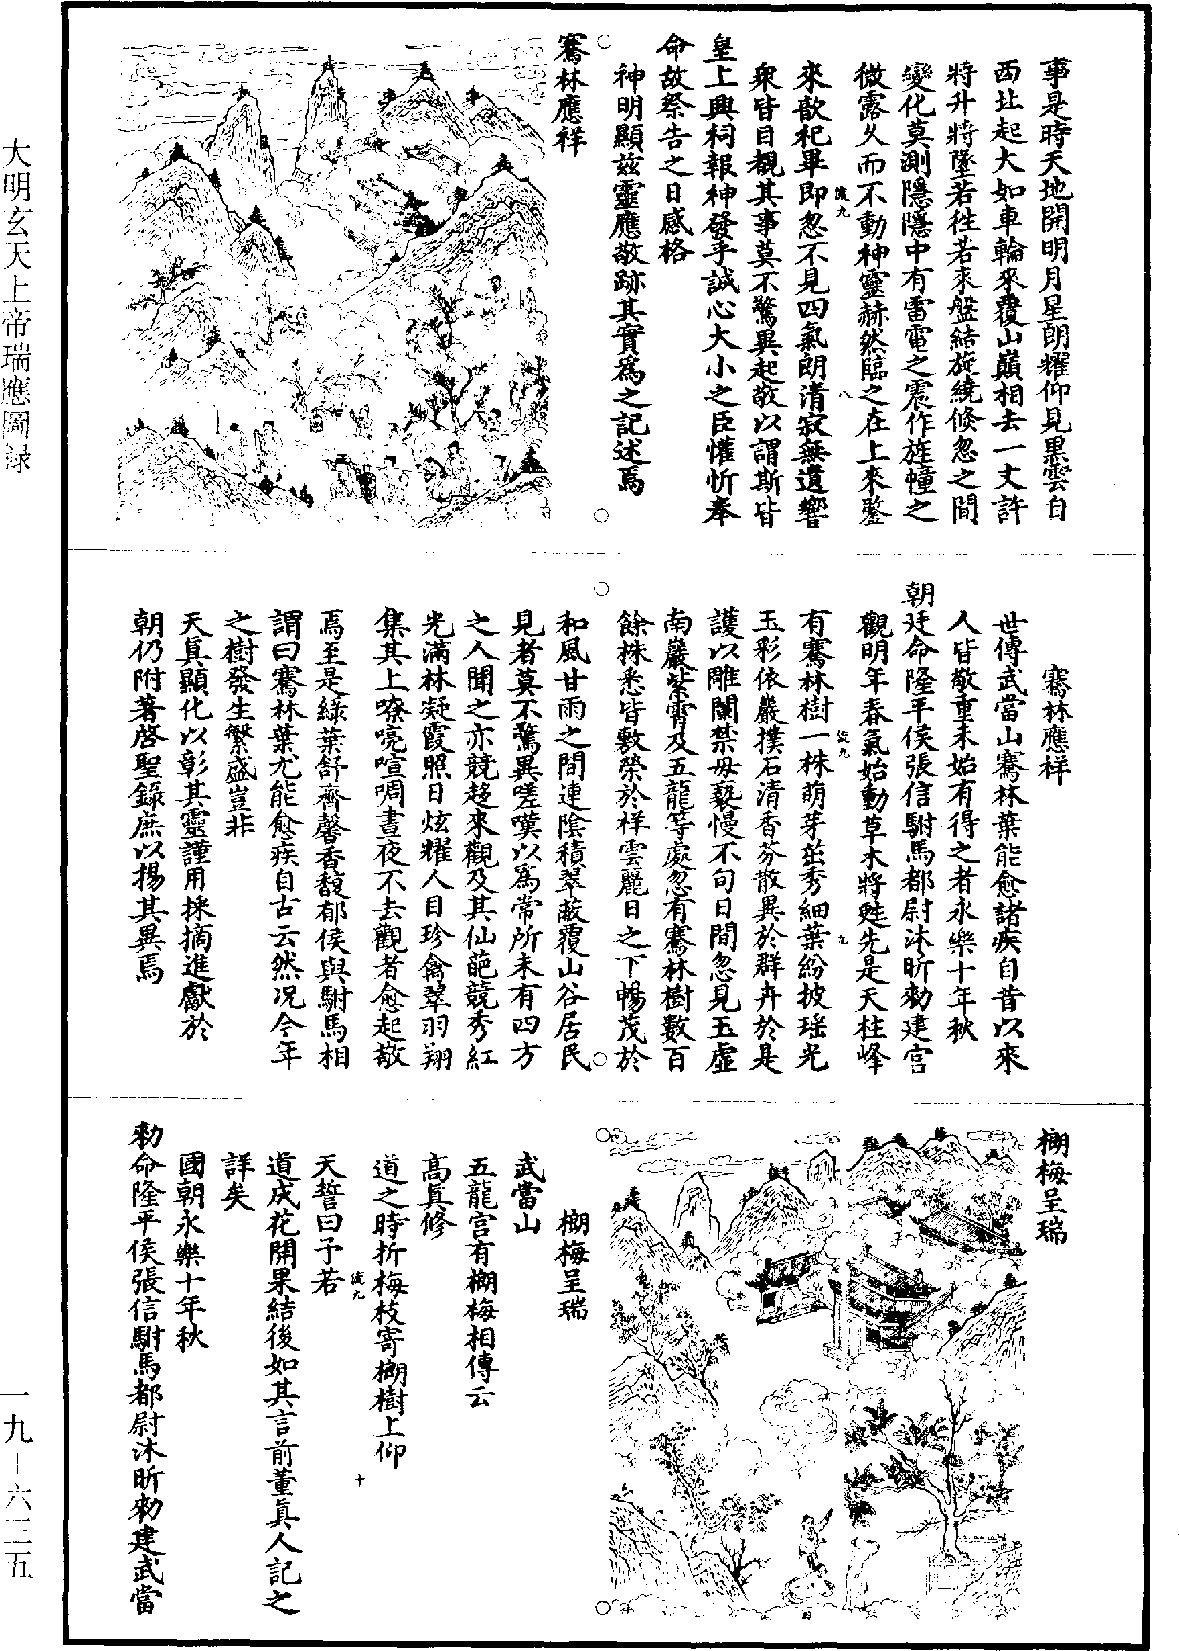 事是時天地開明月星朗耀仰見黑雲自
西北起大如車輪來覆山巔相去一丈許
將升將墜若徃若來盤結旋繞倐忽之間
變化莫測隱隱中有雷電之震作旌幢之
微露久而不動神靈赫然臨之在上來鑒
來歆祀畢即忽不見四氣朗清寂無遺響
衆皆目覩其事莫不驚異起敬以謂斯皆
皇上興祠報神發乎誠心大小之臣懽忻奉
命故祭告之日感格
神明顯兹靈應敬跡其實爲之記述焉
騫林應祥
騫林應祥
世傳武當山騫林葉能愈諸疾自昔以來
人皆敬重未始有得之者永樂十年秋
朝廷命隆平侯張信駙馬都尉沐昕勑建宫
觀明年春氣始動草木將甦先是天柱峰
有騫林樹一株萌芽茁秀細葉紛披瑶光
玉彩依巖撲石清香芬散異於群卉於是
護以雕闌禁毋褻慢不旬日間忽見玉虚
南巖紫霄及五龍等處忽有騫林樹數百
餘株悉皆敷榮於祥雲麗日之下暢茂於
和風甘雨之間連陰積翠蔽覆山谷居民
見者莫不驚異嗟嘆以爲常所未有四方
之人聞之亦競趍來觀及其仙葩競秀紅
光滿林凝霞照日炫耀人目珍禽翠羽翔
集其上嘹亮喧啁晝夜不去觀者愈起敬
焉至是綠葉舒齊馨香馥郁侯與駙馬相
謂曰騫林葉尤能愈疾自古云然况今年
之樹發生繁盛豈非
天真顯化以彰其靈謹用採摘進獻於
朝仍附著啓聖錄庶以揚其異焉
榔梅呈瑞
榔梅呈瑞
武當山
五龍宫有榔梅相傳云
高真修
道之時折梅枝寄榔樹上仰
天誓曰予若
道成花開果結後如其言前董真人記之
詳矣
國朝永樂十年秋
勑命隆平侯張信駙馬都尉沐昕勑建武當
大明玄天上帝瑞應圖録
一九－六三五